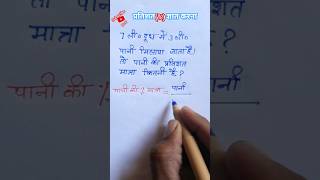 प्रतिशत (%) ज्ञात करना
7 ली० दूध में 3 ली०
पानी मिलाया जाता है।
तो पानी की प्रतिशत
मात्रा कितनी है?
पानी की % मात्रा = पानी